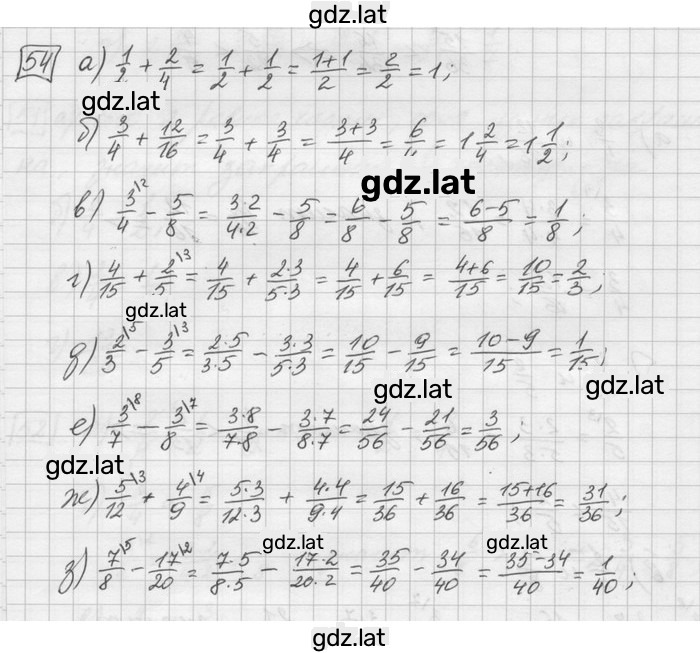 gdz.lat
54 а) 1/2 + 2/4 = 1/2 + 1/2 = (1+1)/2 = 2/2 = 1;
gdz.lat
б) 3/4 + 12/16 = 3/4 + 3/4 = (3+3)/4 = 6/4 = 1 2/4 = 1 1/2;
gdz.lat
в) 3/4\2 - 5/8 = (3·2)/(4·2) - 5/8 = 6/8 - 5/8 = (6-5)/8 = 1/8;
г) 4/15 + 2/5\3 = 4/15 + (2·3)/(5·3) = 4/15 + 6/15 = (4+6)/15 = 10/15 = 2/3;
gdz.lat
д) 2/3\5 - 3/5\3 = (2·5)/(3·5) - (3·3)/(5·3) = 10/15 - 9/15 = (10-9)/15 = 1/15;
gdz.lat gdz.lat
е) 3/7\8 - 3/8\7 = (3·8)/(7·8) - (3·7)/(8·7) = 24/56 - 21/56 = 3/56;
gdz.lat
ж) 5/12\3 + 4/9\4 = (5·3)/(12·3) + (4·4)/(9·4) = 15/36 + 16/36 = (15+16)/36 = 31/36;
gdz.lat gdz.lat
з) 7/8\5 - 17/20\2 = (7·5)/(8·5) - (17·2)/(20·2) = 35/40 - 34/40 = (35-34)/40 = 1/40;
gdz.lat